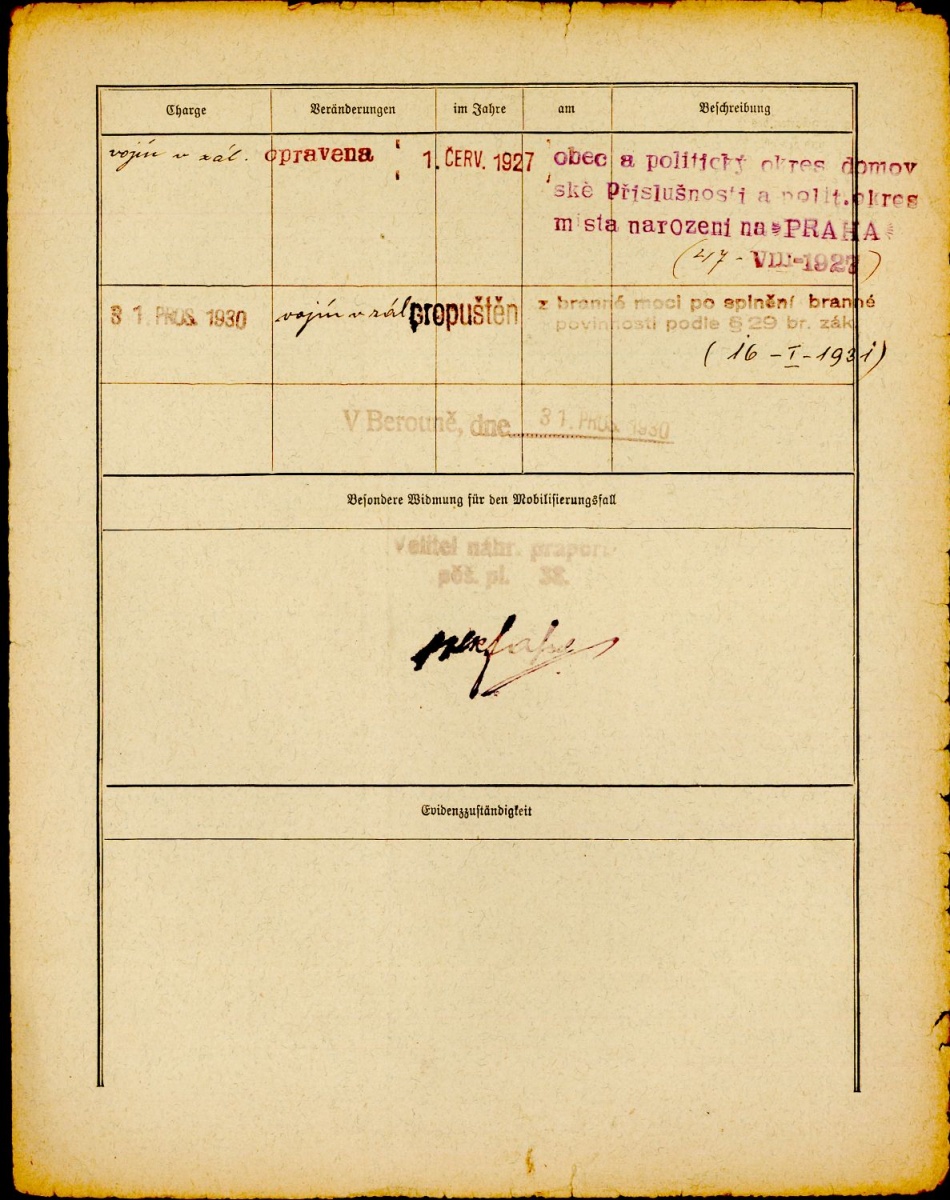 Charge Veränderungen im Jahre am Beschreibung
vojín v zál. opravena 1. ČERV. 1927 obec a politický okres domov
ské příslušnosti a polit. okres
místa narození na PRAHA
( - VIII-1927)
31. PROS. 1930 vojín v zál. propuštěn z branné moci po splnění branné
povinnosti podle § 29 br. zák.
(16 - I - 1931)
V Berouně, dne 31. PROS. 1930
Besondere Widmung für den Mobilisierungsfall
Velitel náhr. praporu
pěš. pl. 38.
Evidenzzuständigkeit